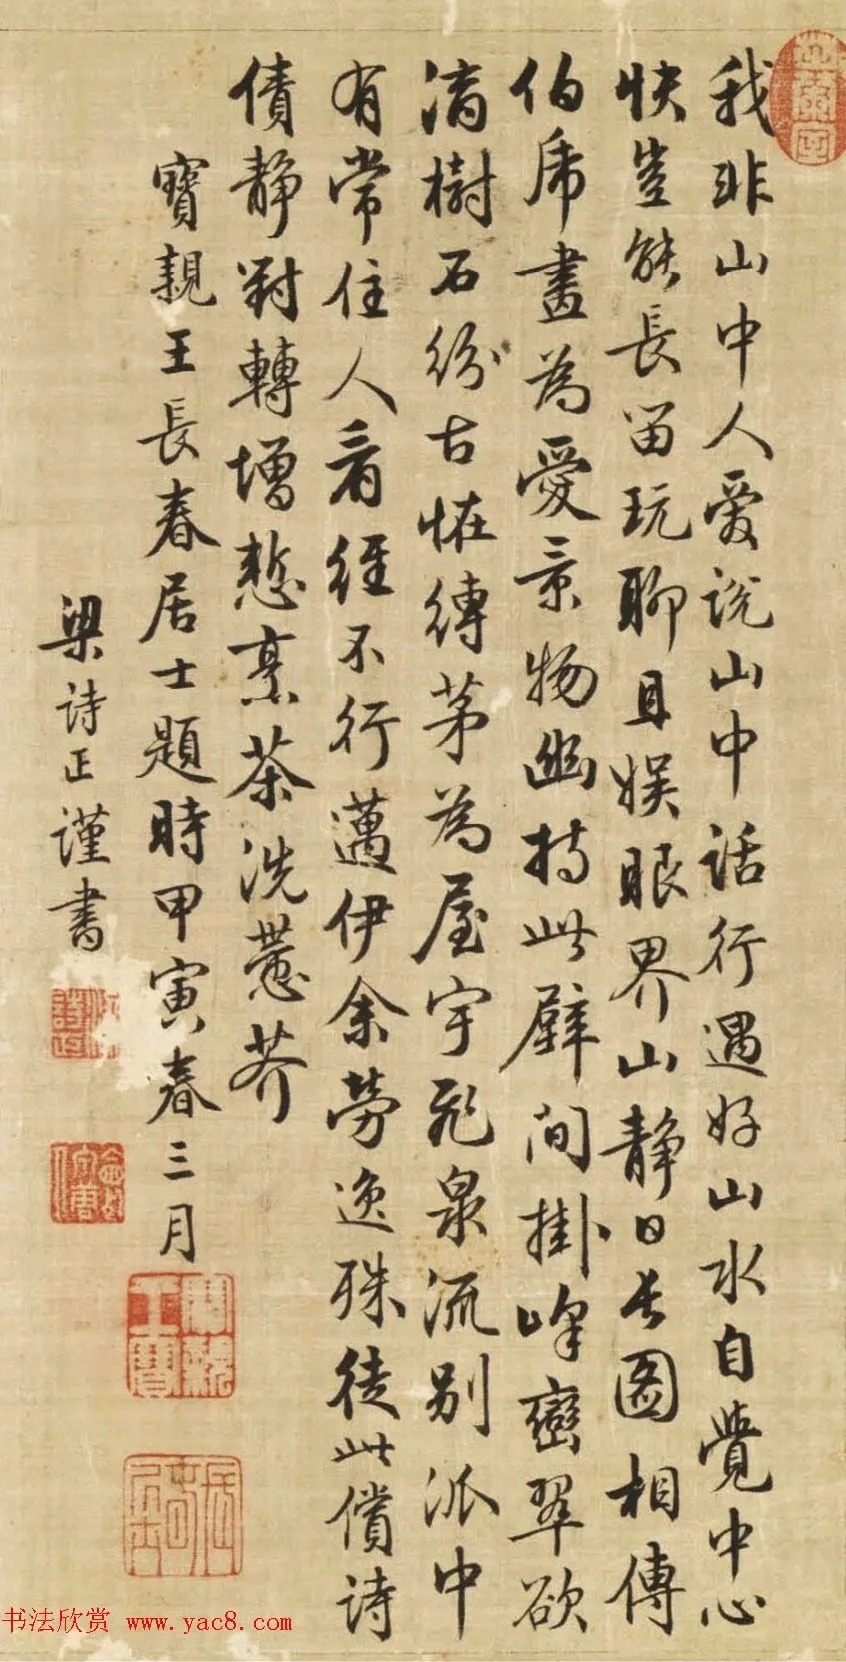 我非山中人爱説山中話行遇好山水自覺中心
快豈能長留玩聊且娱眼界山静日長圖相傳
伯虎畫為愛景物幽持此壁間掛峰巒翠欲
滴樹石紛古怪縛茅為屋宇飛泉流别派中
有常住人看經不行邁伊余勞逸殊徒此償詩
債静對轉增慙烹茶洗蔕芥
寶親王長春居士題時甲寅春三月
寶親王寶
長春居士
梁詩正謹書
书法欣赏 www.yac8.com